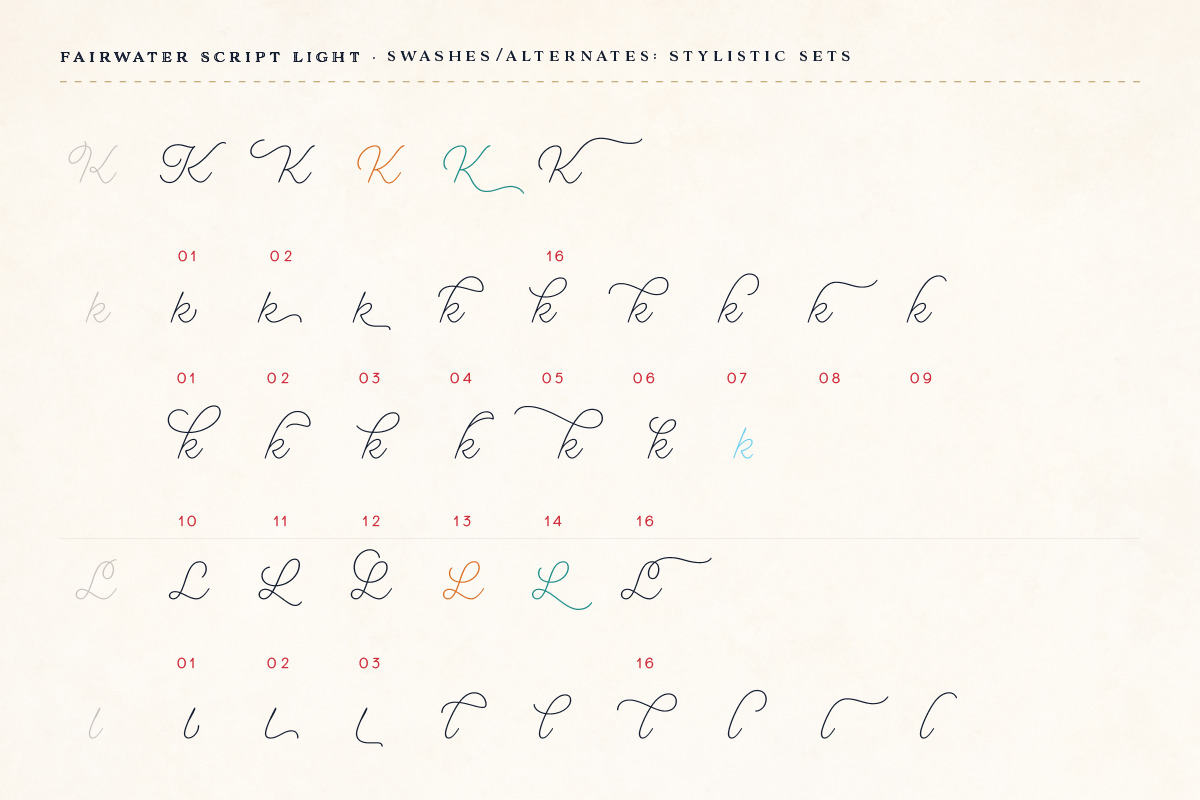 FAIRWATER SCRIPT LIGHT · SWASHES/ALTERNATES: STYLISTIC SETS
K K K K K K
01 02 16
k k k k k k k k k k
01 02 03 04 05 06 07 08 09
k k k k k k k
10 11 12 13 14 16
L L L L L L
01 02 03 16
l l l l l l l l l l